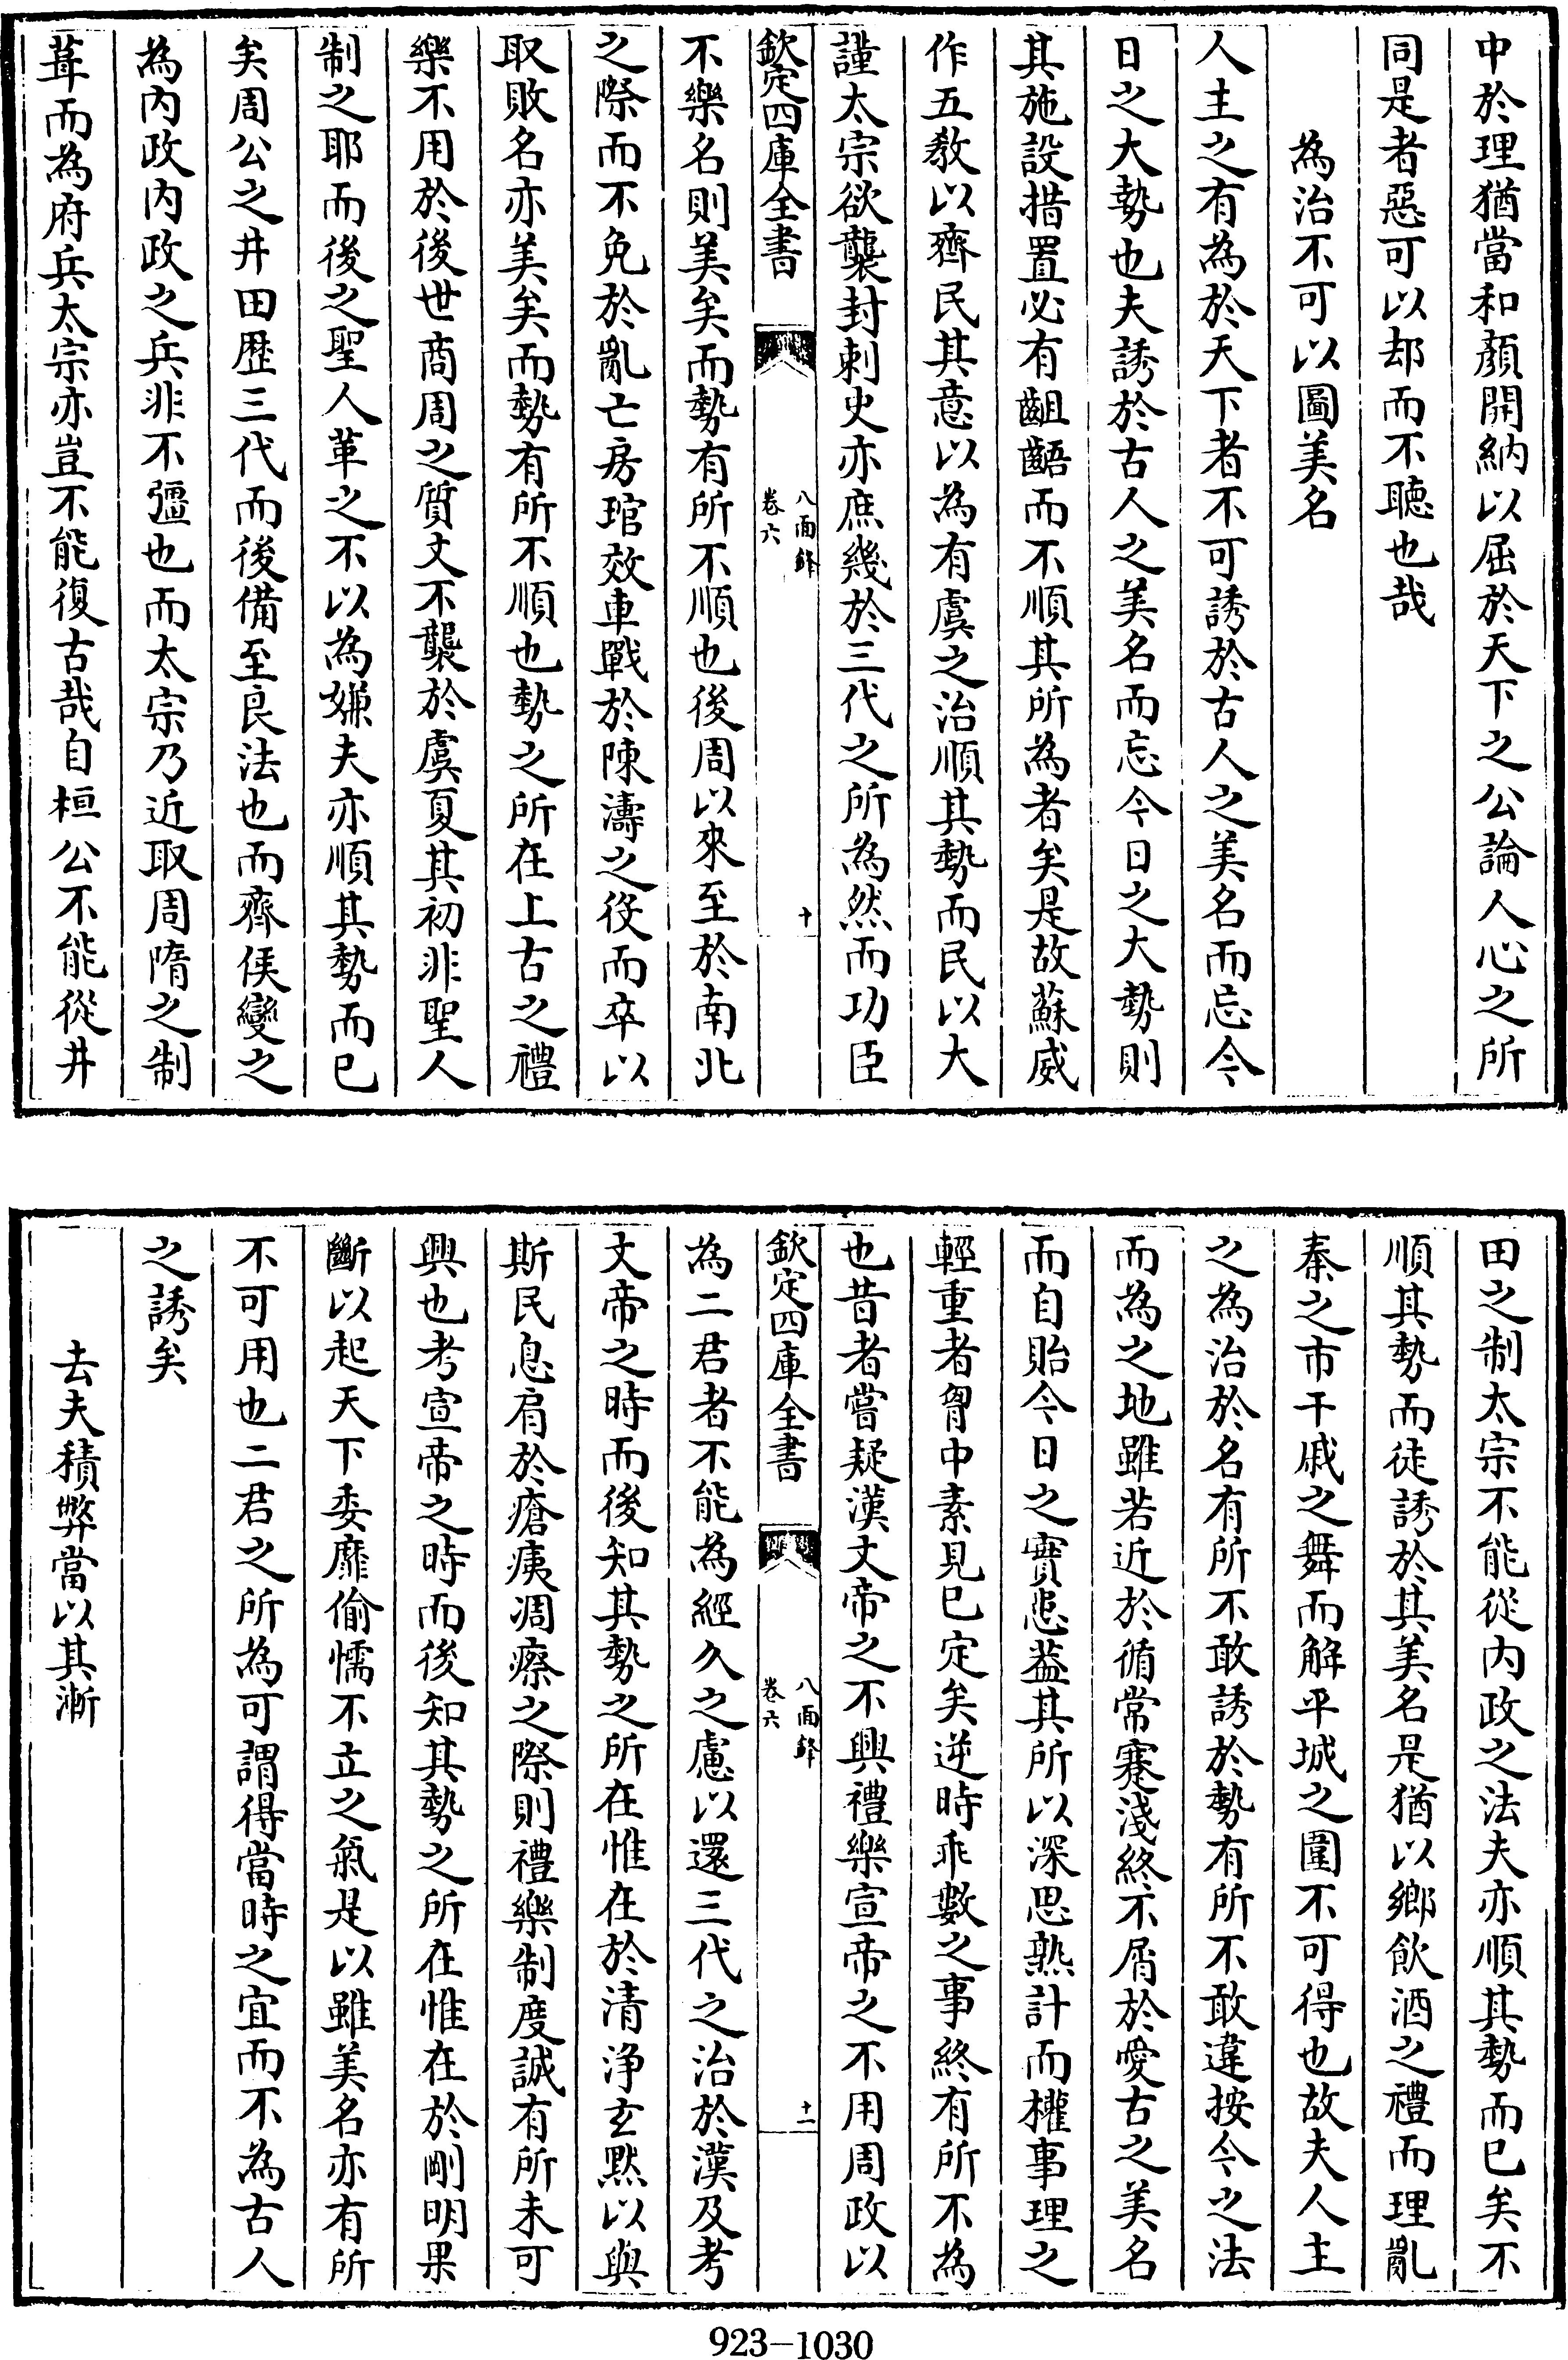 中於理猶當和顏開納以屈於天下之公論人心之所
同是者惡可以却而不聽也哉
為治不可以圖美名
人主之有為於天下者不可誘於古人之美名而忘今
日之大勢也夫誘於古人之美名而忘今日之大勢則
其施設措置必有齟齬而不順其所為者矣是故蘇威
作五教以齊民其意以為有虞之治順其勢而民以大
讙太宗欲襲封刺史亦庶幾於三代之所為然而功臣
欽定四庫全書
八面鋒
卷六
十
不樂名則美矣而勢有所不順也後周以來至於南北
之際而不免於亂亡房琯效車戰於陳濤之役而卒以
取敗名亦美矣而勢有所不順也勢之所在上古之禮
樂不用於後世商周之質文不襲於虞夏其初非聖人
制之耶而後之聖人革之不以為嫌夫亦順其勢而已
矣周公之井田歷三代而後備至良法也而齊侯變之
為內政內政之兵非不彊也而太宗乃近取周隋之制
葺而為府兵太宗亦豈不能復古哉自桓公不能從井
田之制太宗不能從內政之法夫亦順其勢而已矣不
順其勢而徒誘於其美名是猶以鄉飲酒之禮而理亂
秦之市干戚之舞而解平城之圍不可得也故夫人主
之為治於名有所不敢誘於勢有所不敢違按今之法
而為之地雖若近於循常蹇淺終不屑於愛古之美名
而自貽今日之實患蓋其所以深思熟計而權事理之
輕重者胷中素見已定矣逆時乖數之事終有所不為
也昔者嘗疑漢文帝之不興禮樂宣帝之不用周政以
欽定四庫全書
八面鋒
卷六
十一
為二君者不能為經久之慮以還三代之治於漢及考
文帝之時而後知其勢之所在惟在於清淨玄默以與
斯民息肩於瘡痍凋瘵之際則禮樂制度誠有所未可
興也考宣帝之時而後知其勢之所在惟在於剛明果
斷以起天下委靡偷懦不立之氣是以雖美名亦有所
不可用也二君之所為可謂得當時之宜而不為古人
之誘矣
去夫積弊當以其漸
923-1030